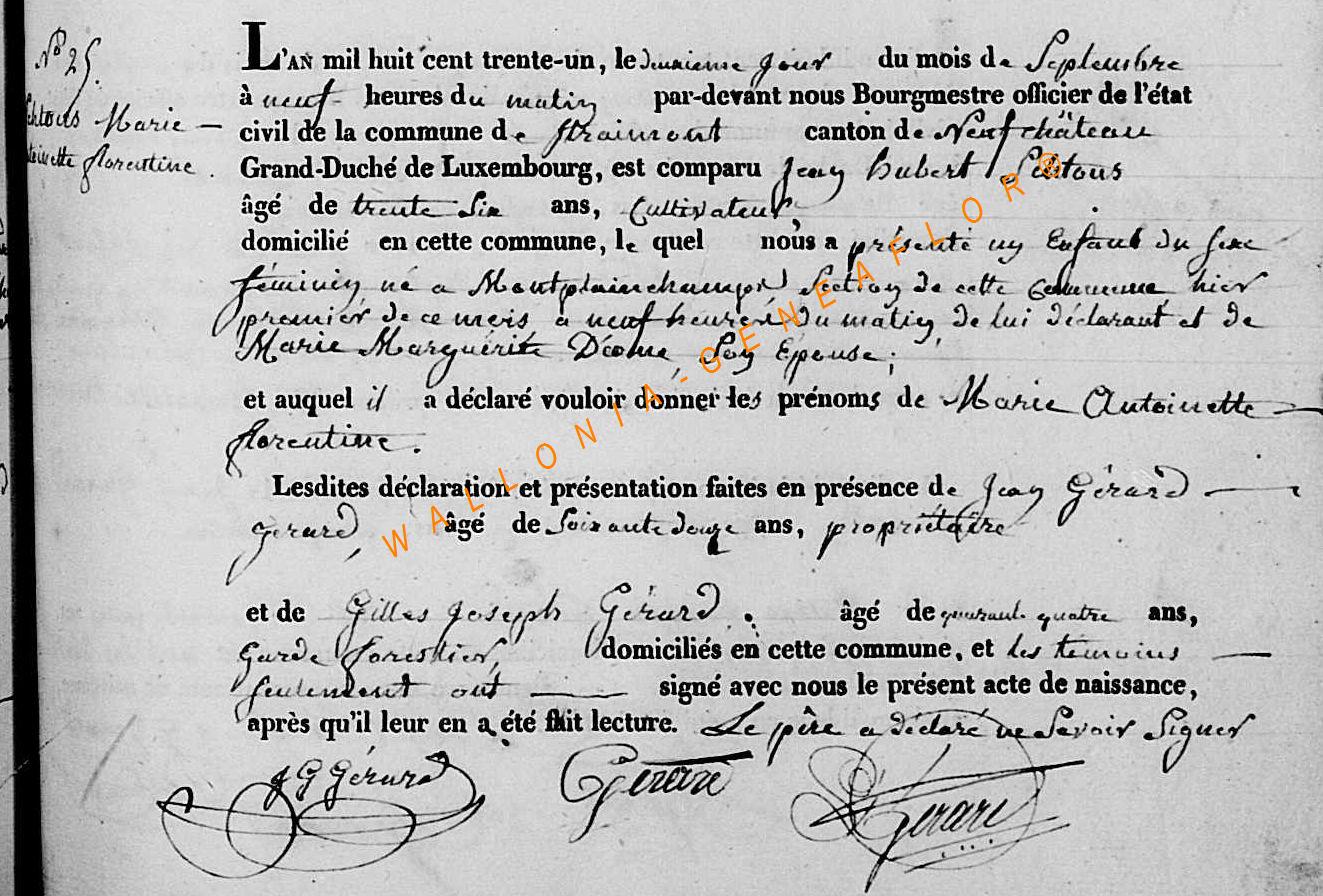 N° 25.
Marie
Antoinette florentine.
L'AN mil huit cent trente-un, le deuxieme jour du mois de Septembre
à neuf heures du matin par-devant nous Bourgmestre officier de l'état
civil de la commune de Straimont canton de Neufchâteau
Grand-Duché de Luxembourg, est comparu Jean hubert
âgé de trente Six ans, Cultivateur,
domicilié en cette commune, le quel nous a présenté un Enfant du Sexe
féminin né a Montplainchamps Section de cette Commune hier
premier de ce mois, a neuf heures du matin, de lui déclarant et de
Marie Marguérite Son Épouse;
et auquel il a déclaré vouloir donner les prénoms de Marie Antoinette
florentine.
Lesdites déclaration et présentation faites en présence de Jean Gérard
gerard, âgé de Soixante douze ans, propriétaire
et de Gilles Joseph Gérard. âgé de quarante quatre ans,
Garde forestier, domiciliés en cette commune, et les témoins
Seulement ont signé avec nous le présent acte de naissance,
après qu'il leur en a été fait lecture. Le père a déclaré ne Savoir Signer
J G Gérard Gerard Gerard
WALLONIA-GENEAFLOR®